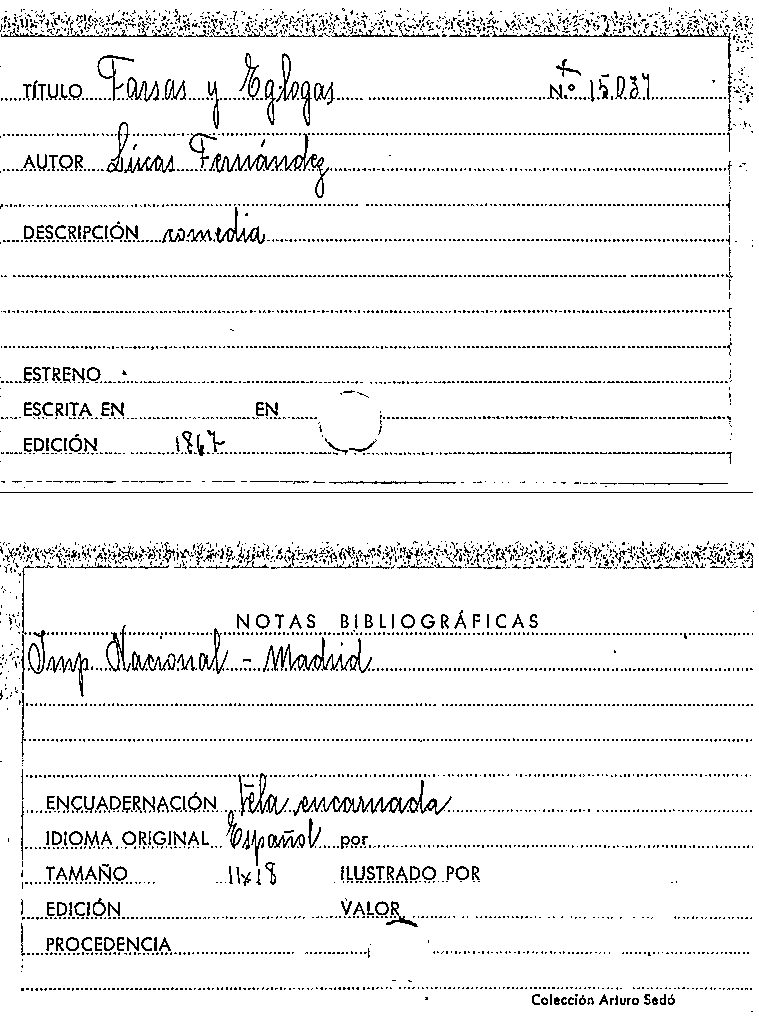 TÍTULO Farsas y Eglogas Nº 15.037
AUTOR Lucas Fernández
DESCRIPCIÓN comedia
ESTRENO
ESCRITA EN EN
EDICIÓN 1867
NOTAS BIBLIOGRÁFICAS
Imp. Nacional - Madrid
ENCUADERNACIÓN Tela encarnada
IDIOMA ORIGINAL Español por
TAMAÑO 11x18 ILUSTRADO POR
EDICIÓN VALOR
PROCEDENCIA
Colección Arturo Sedó